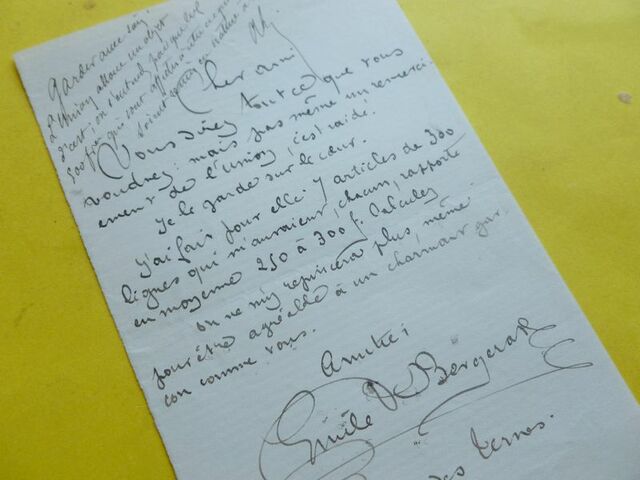 Garder avec soin
l'Union alloue un objet
d'art, on
500 frs qui sont
soient
Cher ami
Vous direz tout ce que vous
voudrez: mais pas même un remerci-
ement de l'Union, c'est raide!
Je le garde sur le cœur.
J'ai fait pour elle 7 articles de 300
lignes qui m'auraient, chacun, rapporté
en moyenne 250 à 300 f. Calculez
on ne m'y repincera plus, même
pour être agréable à un charmant gar-
con comme vous.
Amitiés
Emile Bergerat
des Ternes.